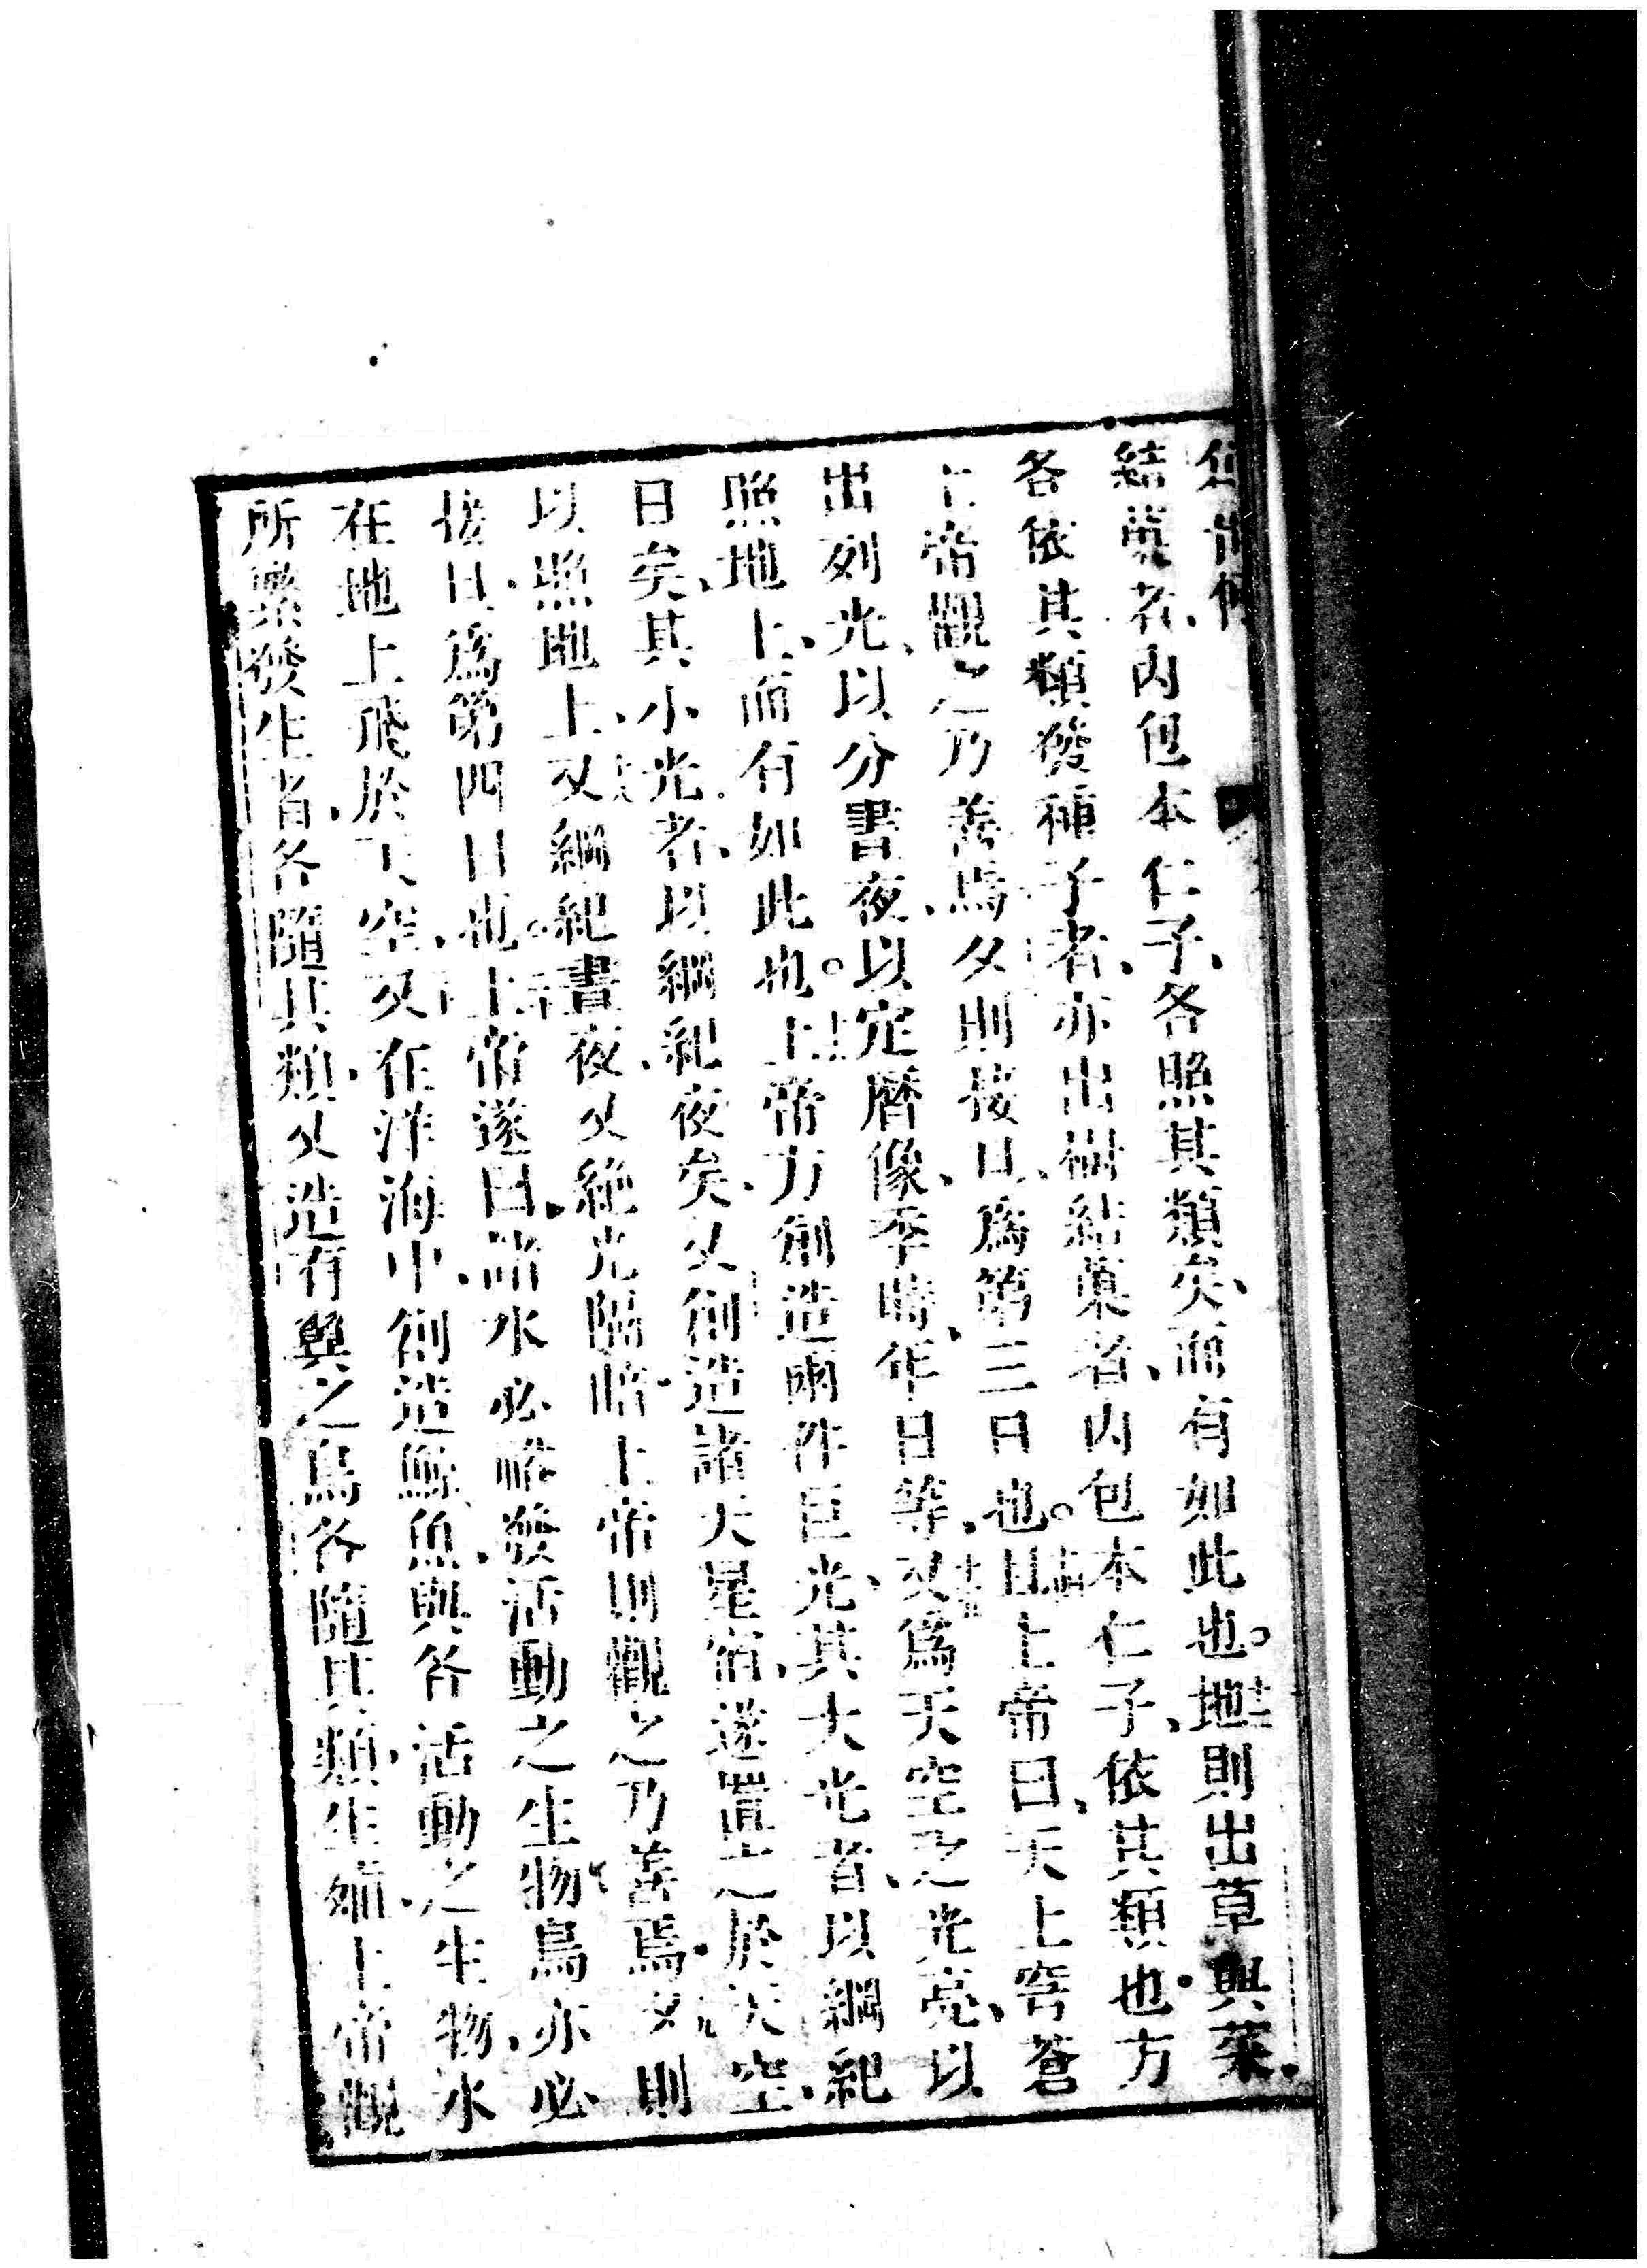 結菓者、內包本仁子、各照其類矣、而有如此也。地則出草與菜、
各依其類發種子者、亦出樹結菓者、內包本仁子、依其類也、方
上帝觀之乃善焉、夕則接日、爲第三日也。且上帝曰、天上穹蒼
出列光、以分晝夜、以定曆像、季時、年日等、又爲天空之光亮、以
照地上、而有如此也。上帝方創造兩件巨光、其大光者、以綱紀
日矣、其小光者、以綱紀夜矣、又創造諸天星宿、遂置之於天空、
以照地上、又綱紀晝夜、又絶光隔暗、上帝則觀之乃善焉、夕則
接日、爲第四日也。上帝遂曰、諸水必發活動之生物、鳥亦必
在地上飛於天空、又在洋海中、創造魚與各活動之生物、水
所繁發生者、各隨其類、又造有翼之鳥各隨其類生、上帝觀